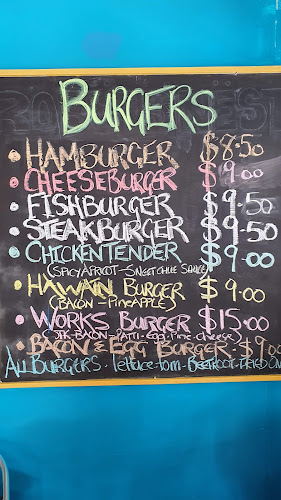 BURGERS
• HAMBURGER $8.50
• CHEESEBURGER $9.00
• FISHBURGER $9.50
• STEAKBURGER $9.50
• CHICKEN TENDER $9.00
(SPICY APRICOT - SWEET CHILLI SAUCE)
• HAWAIN BURGER $9.00
(BACON - PINEAPPLE)
• WORKS BURGER $15.00
BACON - PATTI - Egg - Pine - cheese)
• BACON & EGG BURGER. $9.00
ALL BURGERS. lettuce - tom - BEETROOT -